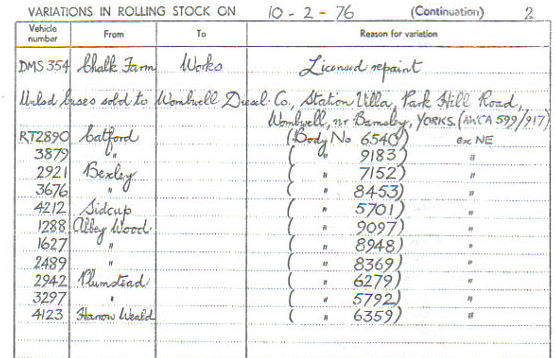 VARIATIONS IN ROLLING STOCK ON 10 - 2 - 76 (Continuation) 2
Vehicle number From To Reason for variation
DMS 354 Chalk Farm Works Licensed repaint
Unlsd buses sold to Wombwell Diesel Co., Station Villa, Park Hill Road,
Wombwell, nr Barnsley, YORKS. (AWCA 599/917)
RT2890 Catford (Body No 6540) exc NE
3879 " ( " 9183) "
2921 Bexley ( " 7152) "
3676 " ( " 8453) "
4212 Sidcup ( " 5701) "
1288 Abbey Wood ( " 9097) "
1627 " ( " 8948) "
2489 " ( " 8369) "
2942 Plumstead ( " 6279) "
3297 " ( " 5792) "
4123 Harrow Weald ( " 6359) "